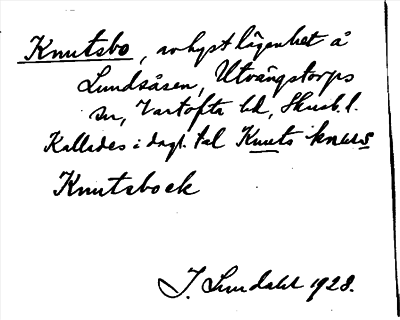 Knutsbo, avhyst lägenhet å
Lundsåsen, Utvängstorps
sn, Vartofta hd, Skarab. l.
Kallades i dagl. tal Knuts
Knutsboek
J. Sundahl 1928.